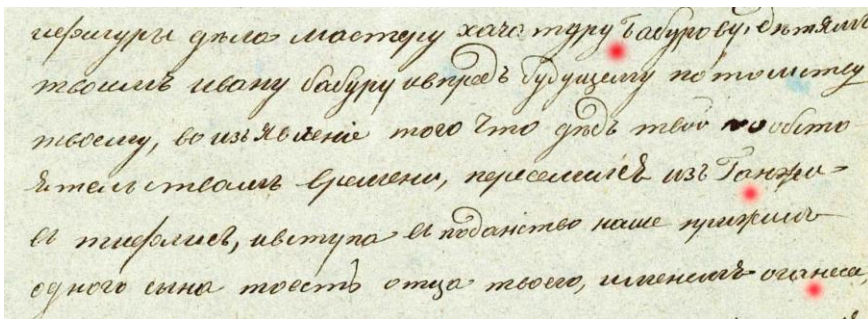 цефигуры дѣла мастеру хачатуру Бабурову, дѣтямъ
твоимъ ивану бабуру ивпредь будущему потомству
твоему, во изъявленіе того что дѣдъ твой по обсто
ятельствамъ времени, переселился изъ Ганжи
въ тифлисъ, ивступа въ поданство наше прижилъ
одного сына тоесть отца твоего, именемъ оганеса,